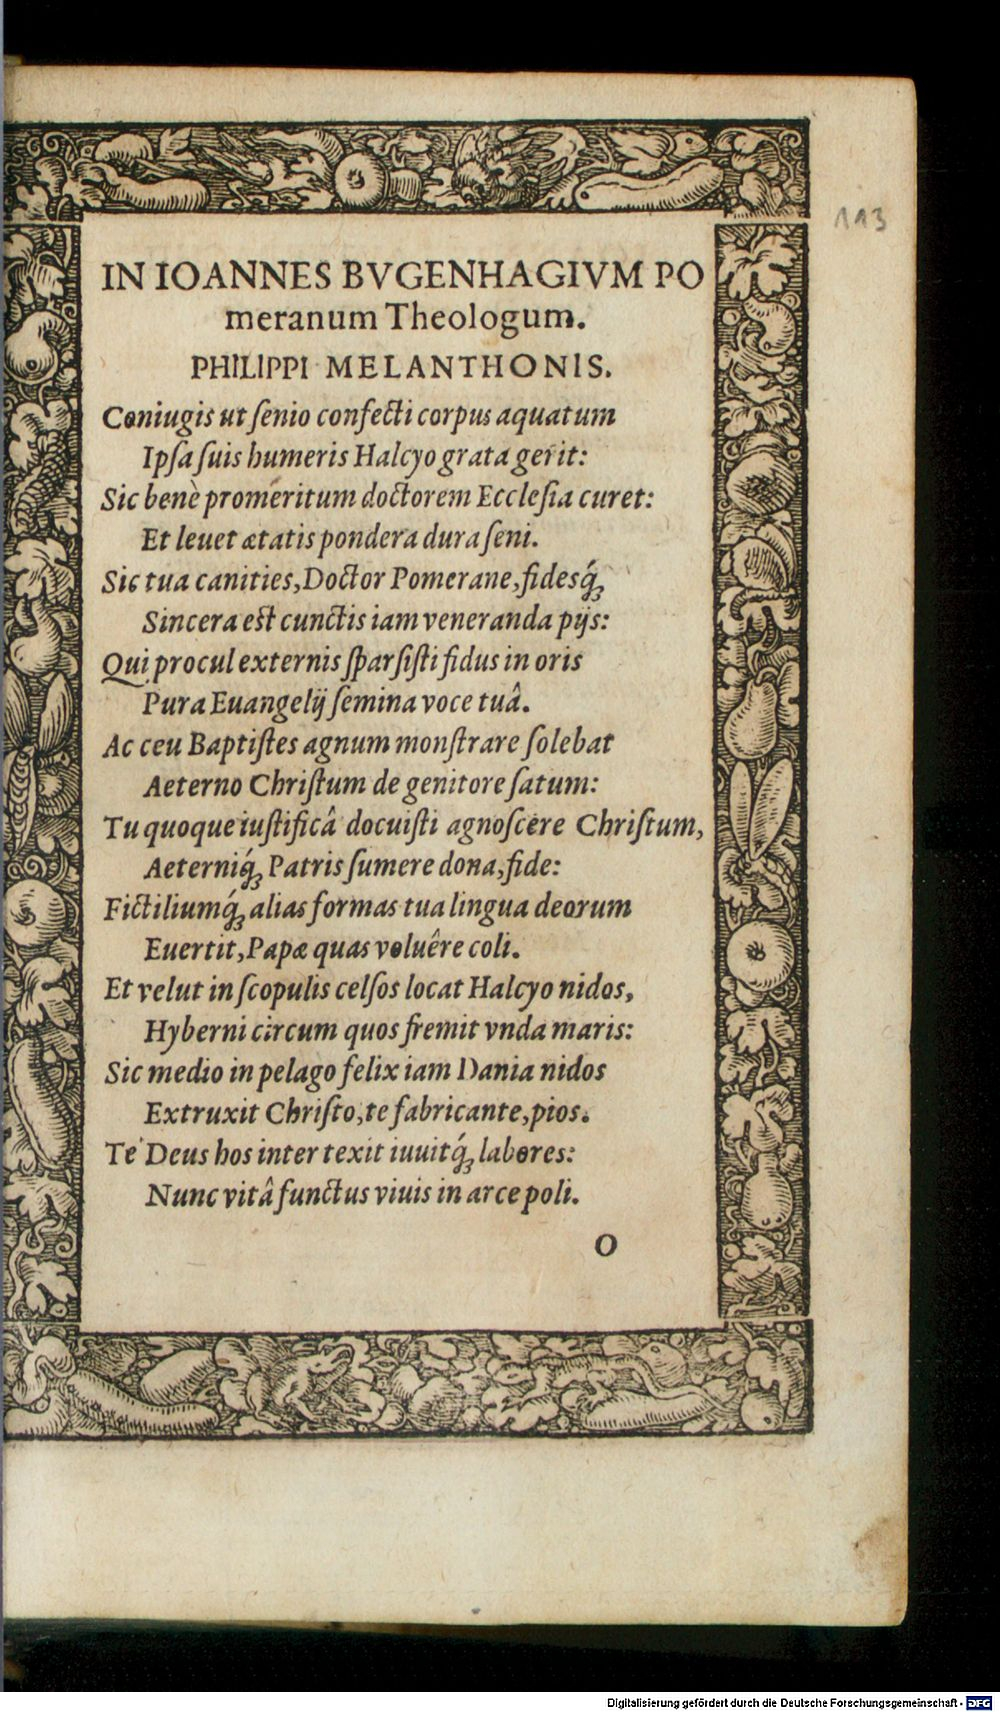 113
IN IOANNES BVGENHAGIVM PO
meranum Theologum.
PHILIPPI MELANTHONIS.
Coniugis ut ſenio confecti corpus aquatum
Ipſa ſuis humeris Halcyo grata gerit:
Sic benè promeritum doctorem Eccleſia curet:
Et leuet ætatis pondera dura ſeni.
Sic tua canities, Doctor Pomerane, fidesq́;
Sincera eſt cunctis iam veneranda pijs:
Qui procul externis ſparſiſti fidus in oris
Pura Euangelij ſemina voce tuâ.
Ac ceu Baptiſtes agnum monſtrare ſolebat
Aeterno Chriſtum de genitore ſatum:
Tu quoque iuſtificâ docuiſti agnoſcere Chriſtum,
Aeterniq́; Patris ſumere dona, fide:
Fictiliumq́; alias formas tua lingua deorum
Euertit, Papæ quas voluêre coli.
Et velut in ſcopulis celſos locat Halcyo nidos,
Hyberni circum quos fremit vnda maris:
Sic medio in pelago felix iam Dania nidos
Extruxit Chriſto, te fabricante, pios.
Te Deus hos inter texit iuuitq́; labores:
Nunc vitâ functus viuis in arce poli.
O
Digitalisierung gefördert durch die Deutsche Forschungsgemeinschaft - DFG